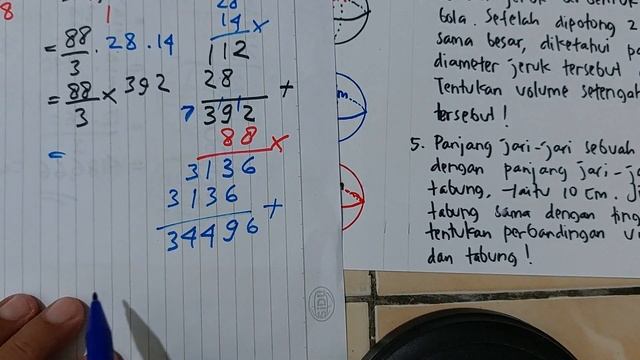 8
1
28
14 x
= 88/3 . 28 . 14
112
28 +
= 88/3 x 392
7 392
88 x
=
3136
3136 +
34496
SIDU
m
bola. Setelah dipotong 2
sama besar, diketahui
diameter jeruk tersebut
Tentukan volume setengah
tersebut!
5. Panjang jari-jari sebuah
dengan panjang jari-
tabung, yaitu 10 cm.
tabung sama dengan
tentukan perbandingan
dan tabung!